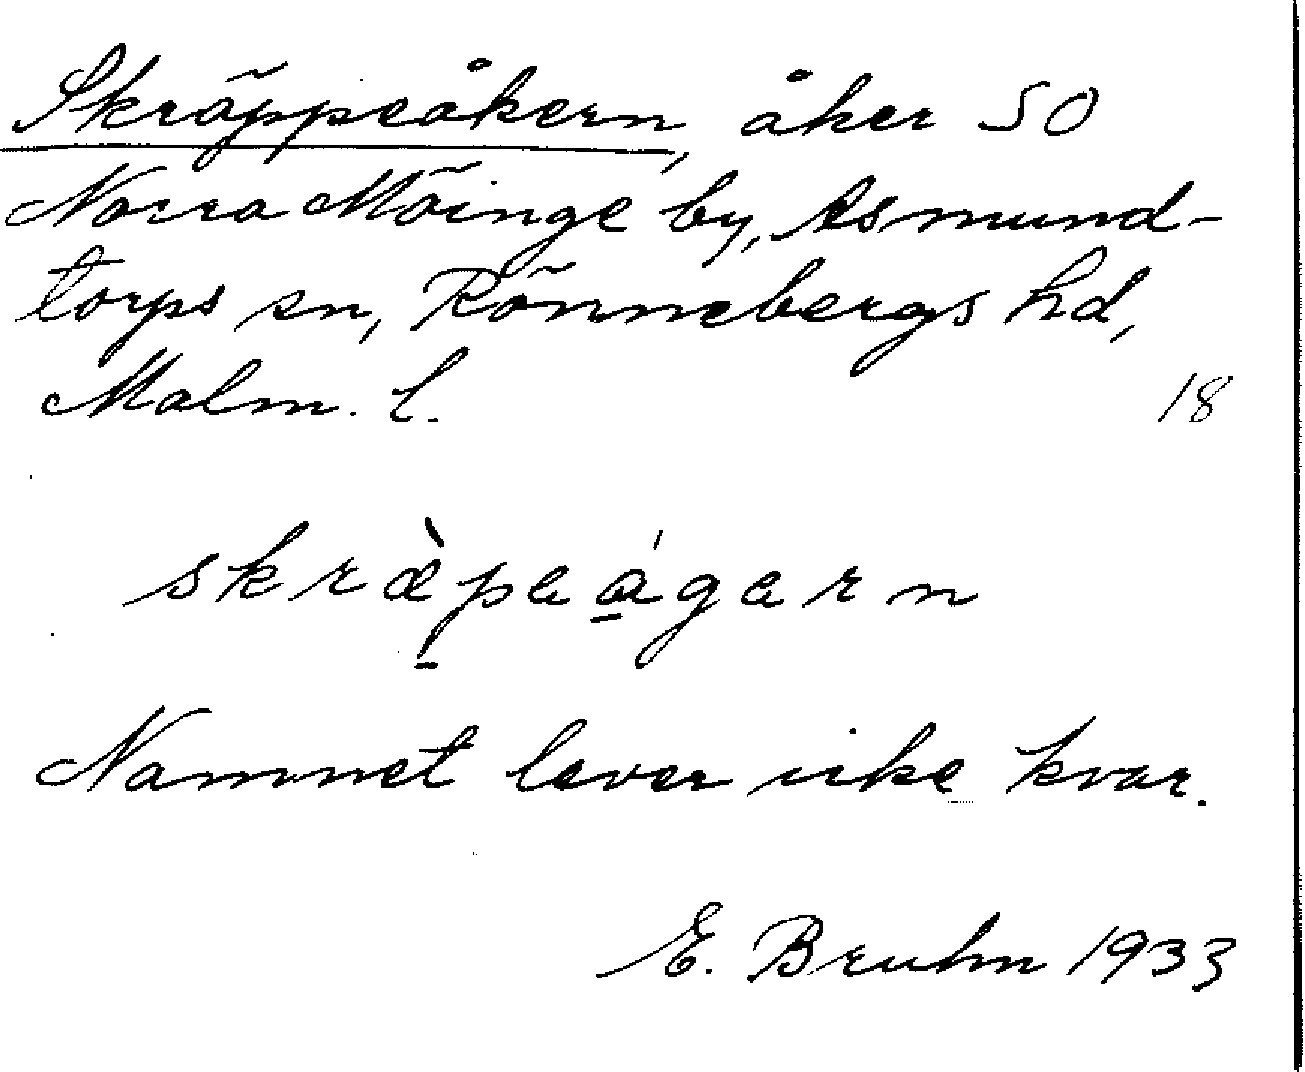 Skräppeåkern, åker SO
Norra Möinge by, Asmund-
torps sn, Rönnebergs hd,
Malm. l.
18
skræ̀peágarn
Namnet lever icke kvar.
E. Bruhn 1933